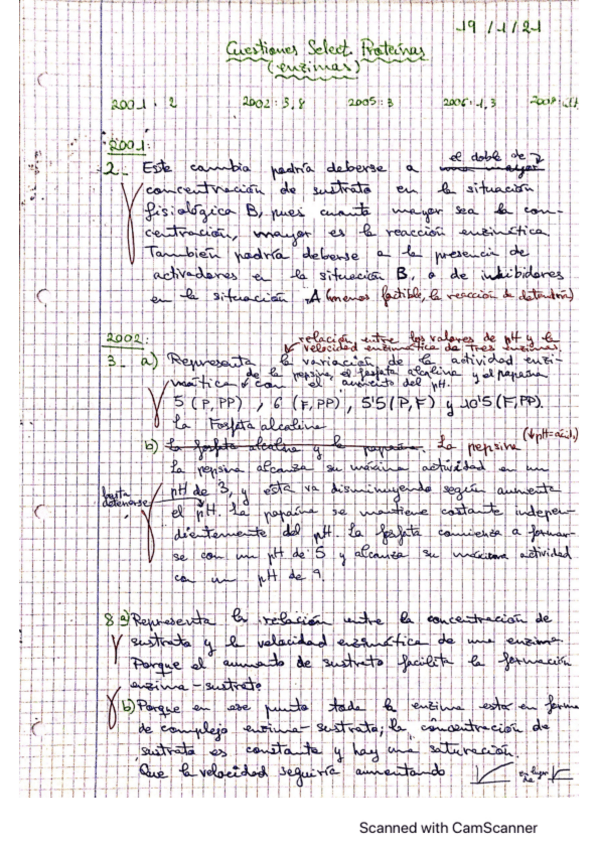 19/1/21
Cuestiones Select. Proteínas
(enzimas)
2001: 2 2002: 3, 8 2005: 3 2006: 1, 3
2001:
2. Este cambio podría deberse a el doble de
concentración de sustrato en la situación
fisiológica B, pues cuanto mayor sea la con-
centración, mayor es la reacción enzimática
También podría deberse a la presencia de
activadores en la situación B, o de inhibidores
en la situación A (menos factible, la reacción se detendría)
2002:
relación entre los valores de pH y la
velocidad enzimática de tres enzimas.
3. a) Representa la variación de la actividad enzi-
de la pepsina, el fosfata alcalina y el papaína
mática con el aumento del pH.
5 (P, PP), 6 (F, PP), 5'5 (P, F) y 10'5 (F, PP).
La Fosfata alcalina
b) La fosfata alcalina y la papaína. La pepsina (↓pH=ácido)
La pepsina alcanza su máxima actividad en un
hasta detenerse
pH de 3, y esta va disminuyendo según aumenta
el pH. La papaína se mantiene costante indepen-
dientemente del pH. La fosfata comienza a formar-
se con un pH de 5 y alcanza su máxima actividad
con un pH de 9.
8 a) Representa la relación entre la concentración de
sustrato y la velocidad enzimática de una enzima.
Porque el aumento de sustrato facilita la formación
enzima-sustrato
b) Porque en ese punto toda la enzima está en forma
de complejo enzima-sustrato; la concentración de
sustrato es constante y hay una saturación.
Que la velocidad seguiría aumentando en lugar de
Scanned with CamScanner